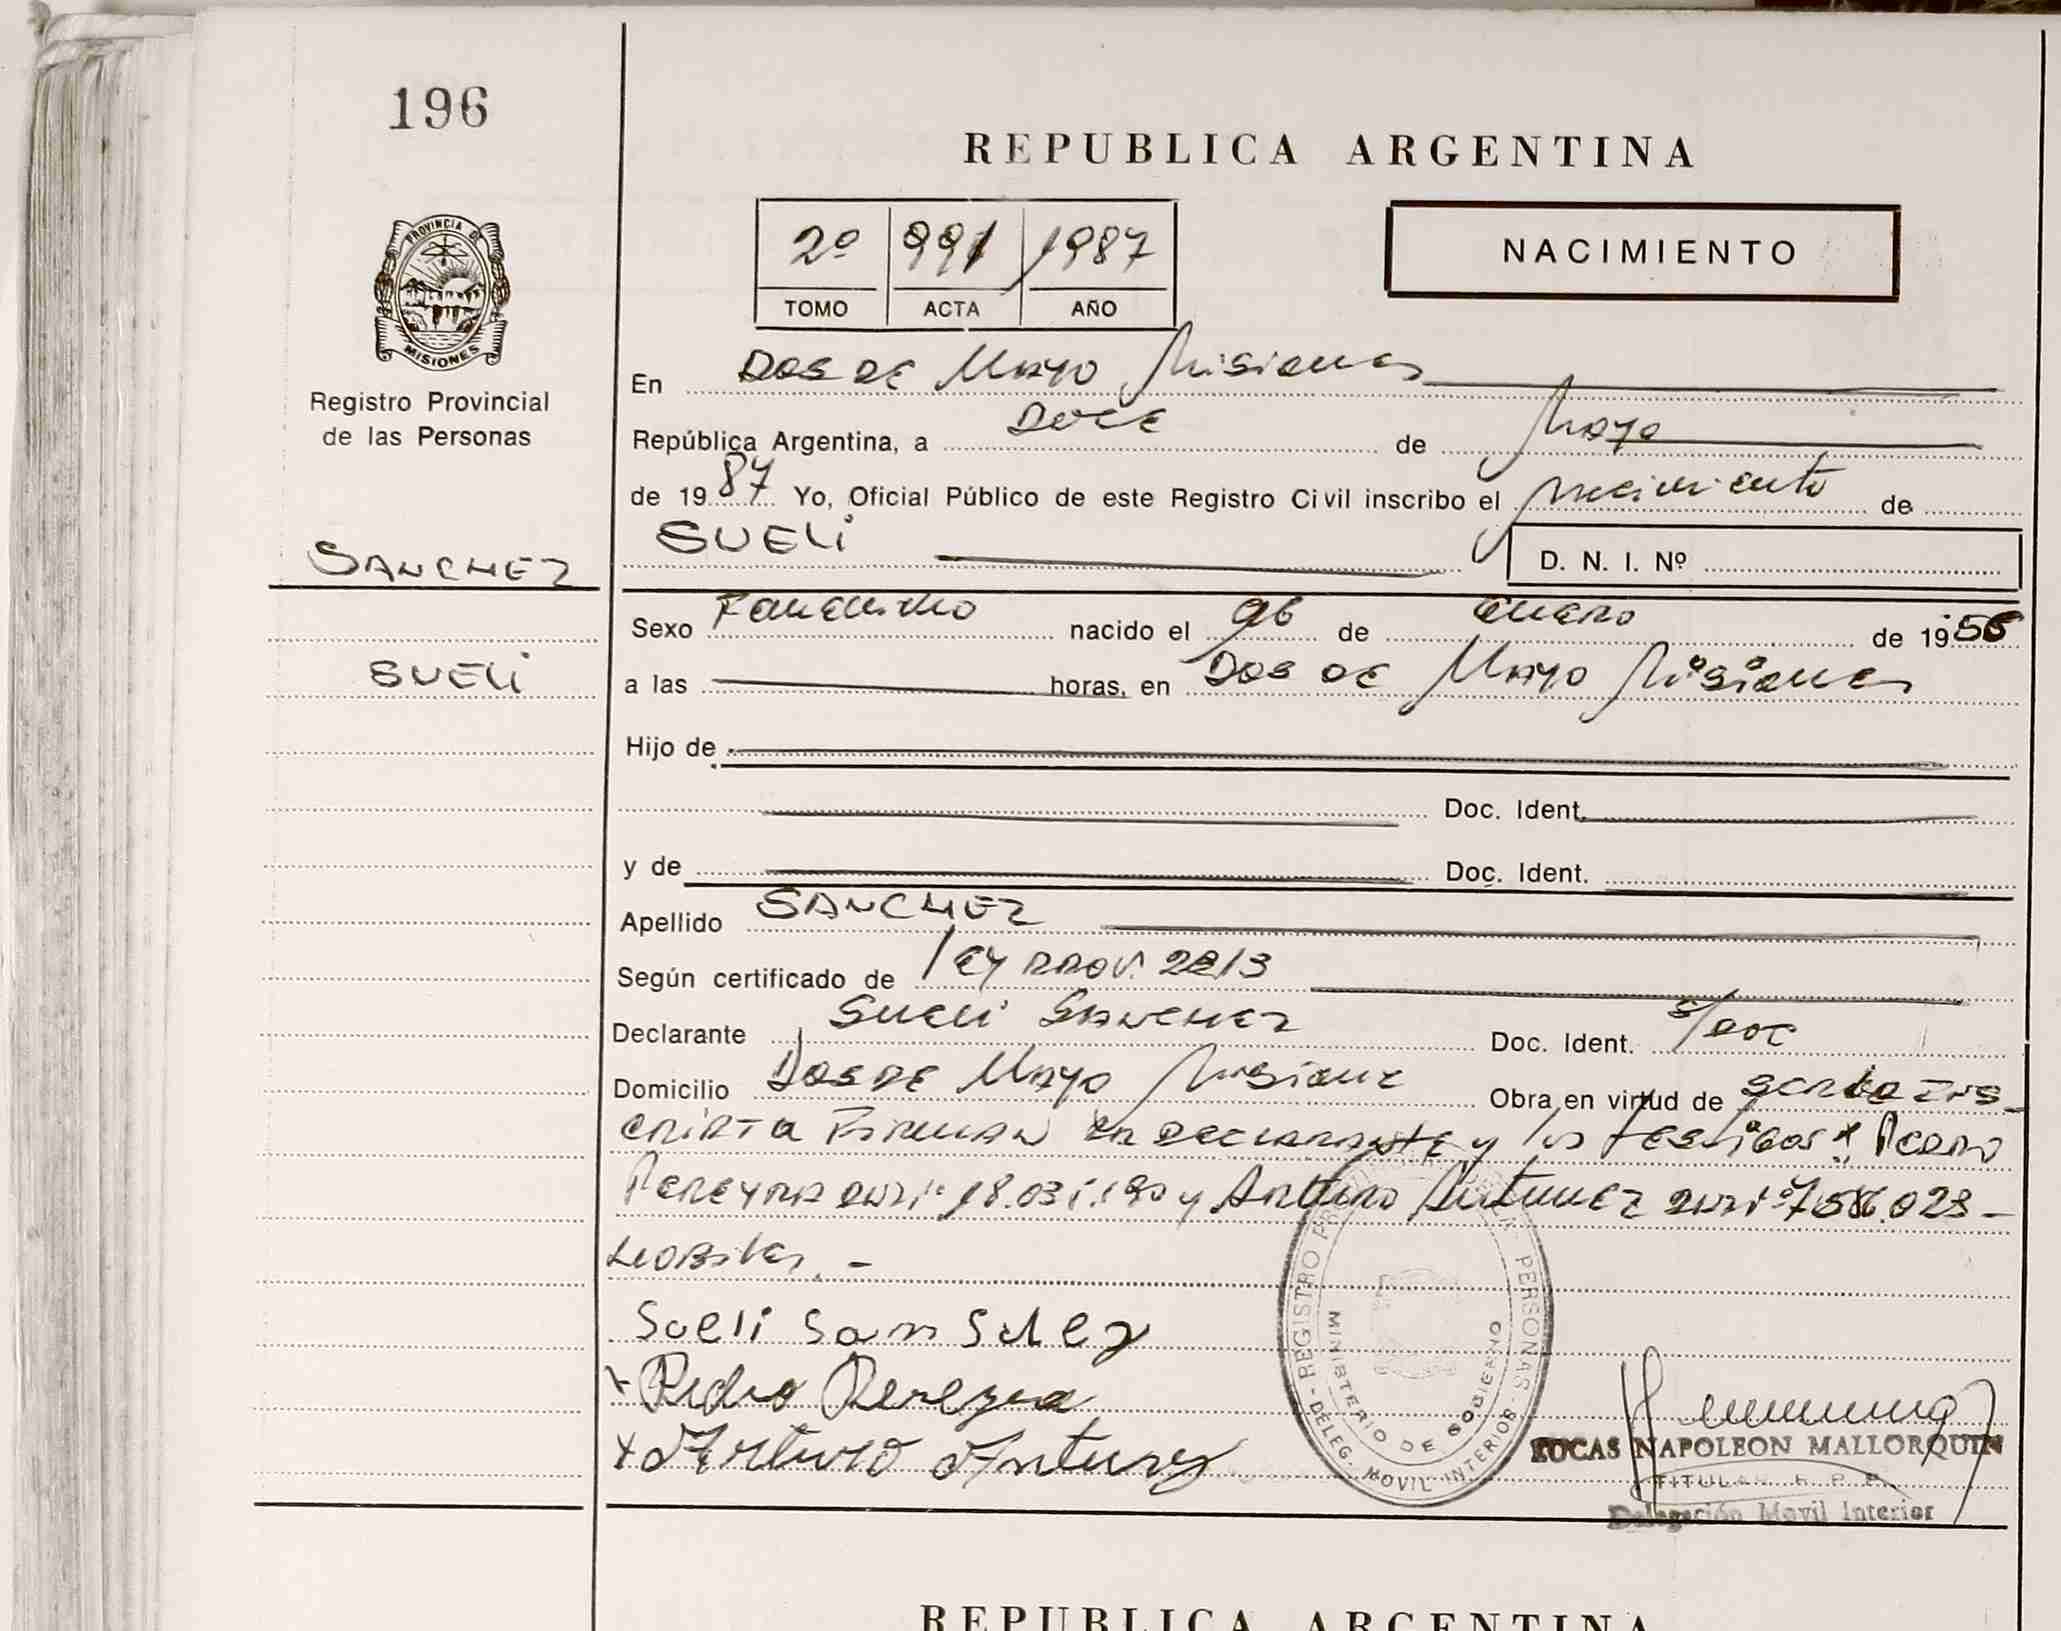 196
REPUBLICA ARGENTINA
2º 991 1987
TOMO ACTA AÑO
NACIMIENTO
PROVINCIA DE
MISIONES
Registro Provincial
de las Personas
En Dos de Mayo Misiones
República Argentina, a Doce de Mayo
de 1987 Yo, Oficial Público de este Registro Civil inscribo el nacimiento de
SANCHEZ
SUELI
SUELI
D. N. I. Nº
Sexo Femenino nacido el 06 de enero de 19
a las horas, en Dos de Mayo Misiones
Hijo de
Doc. Ident.
y de Doc. Ident.
Apellido SANCHEZ
Según certificado de Ley Prov. 2213
Declarante Sueli Sanchez Doc. Ident. s/doc
Domicilio Dos de Mayo Misiones Obra en virtud de ser la ins-
cripta Firman la declarante y los testigos: Pedro
Pereyra y Arturo Antunez
Sueli Sanschez
Pedro Pereyra
Arturo Antunez
REGISTRO PERSONAS
MINISTERIO DE GOBIERNO
DELEG. MOVIL INTERIOR
LUCAS NAPOLEON MALLORQUIN
TITULAR R. P. P.
Delegación Movil Interior
REPUBLICA ARGENTINA